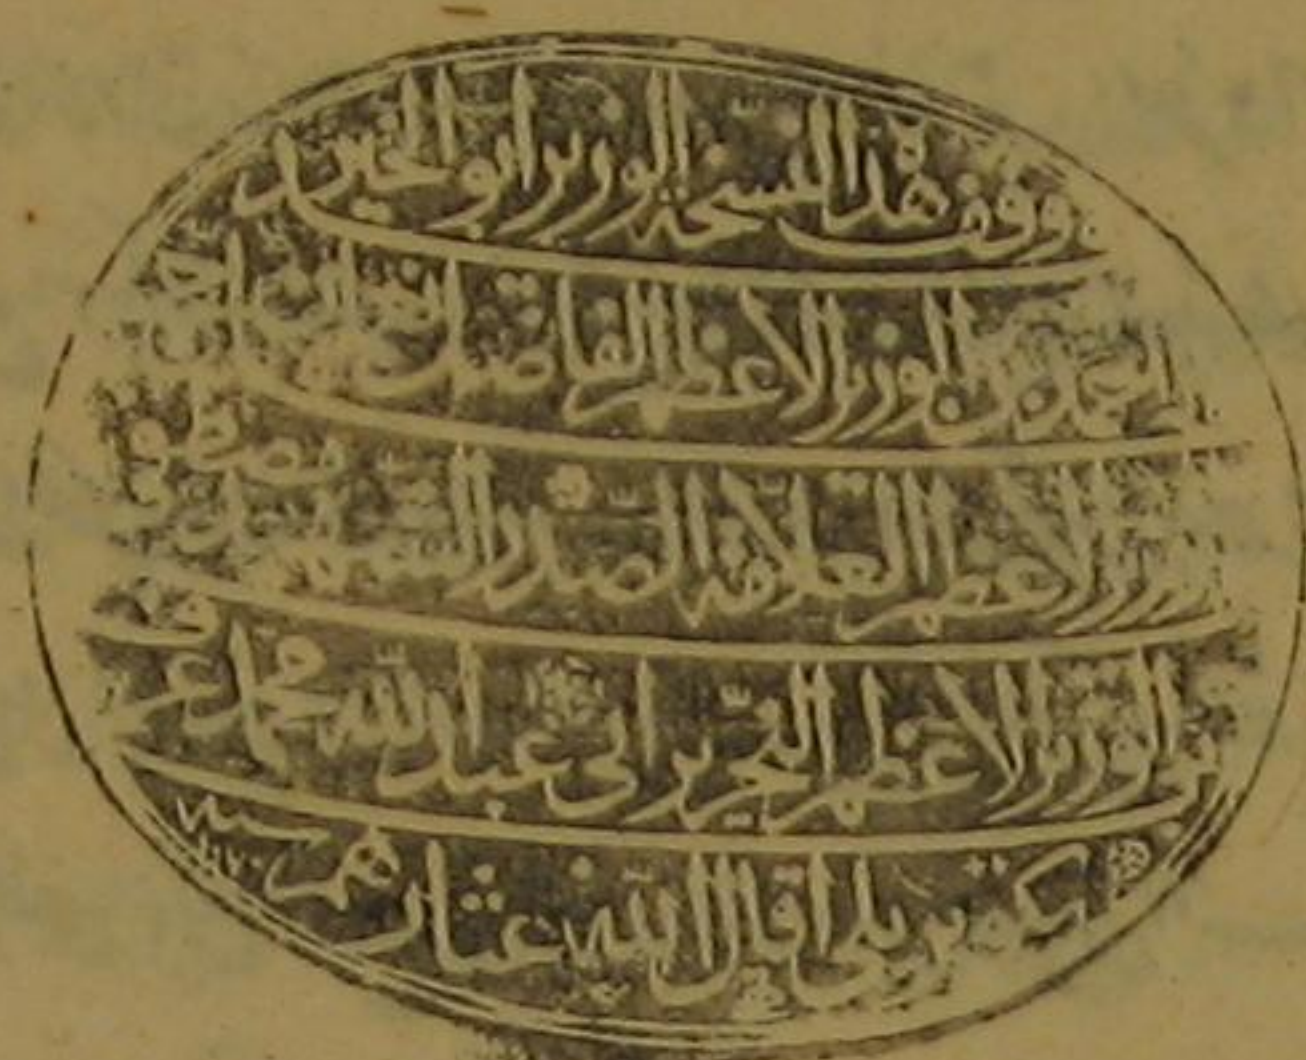 وقف هذا النسخة الوزير ابو الخير
احمد بن الوزير الاعظم الفاضل
الوزير الاعظم العلامة الصدر الشهيد مصطفى
بن الوزير الاعظم النحرير ابى عبد الله محمد عرف
بكوپريلى اقال الله عثارهم سنه